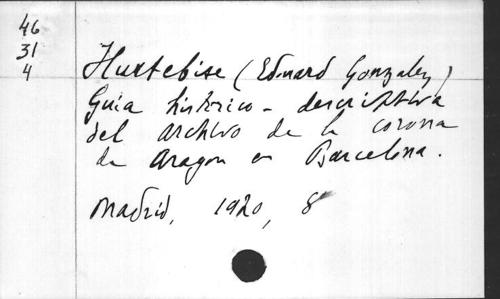 46
31
4
Hurtebise (Eduard Gonzalez)
Guia historico - descriptiva
del archivo de la corona
de Aragon en Barcelona.
Madrid, 1920, 8